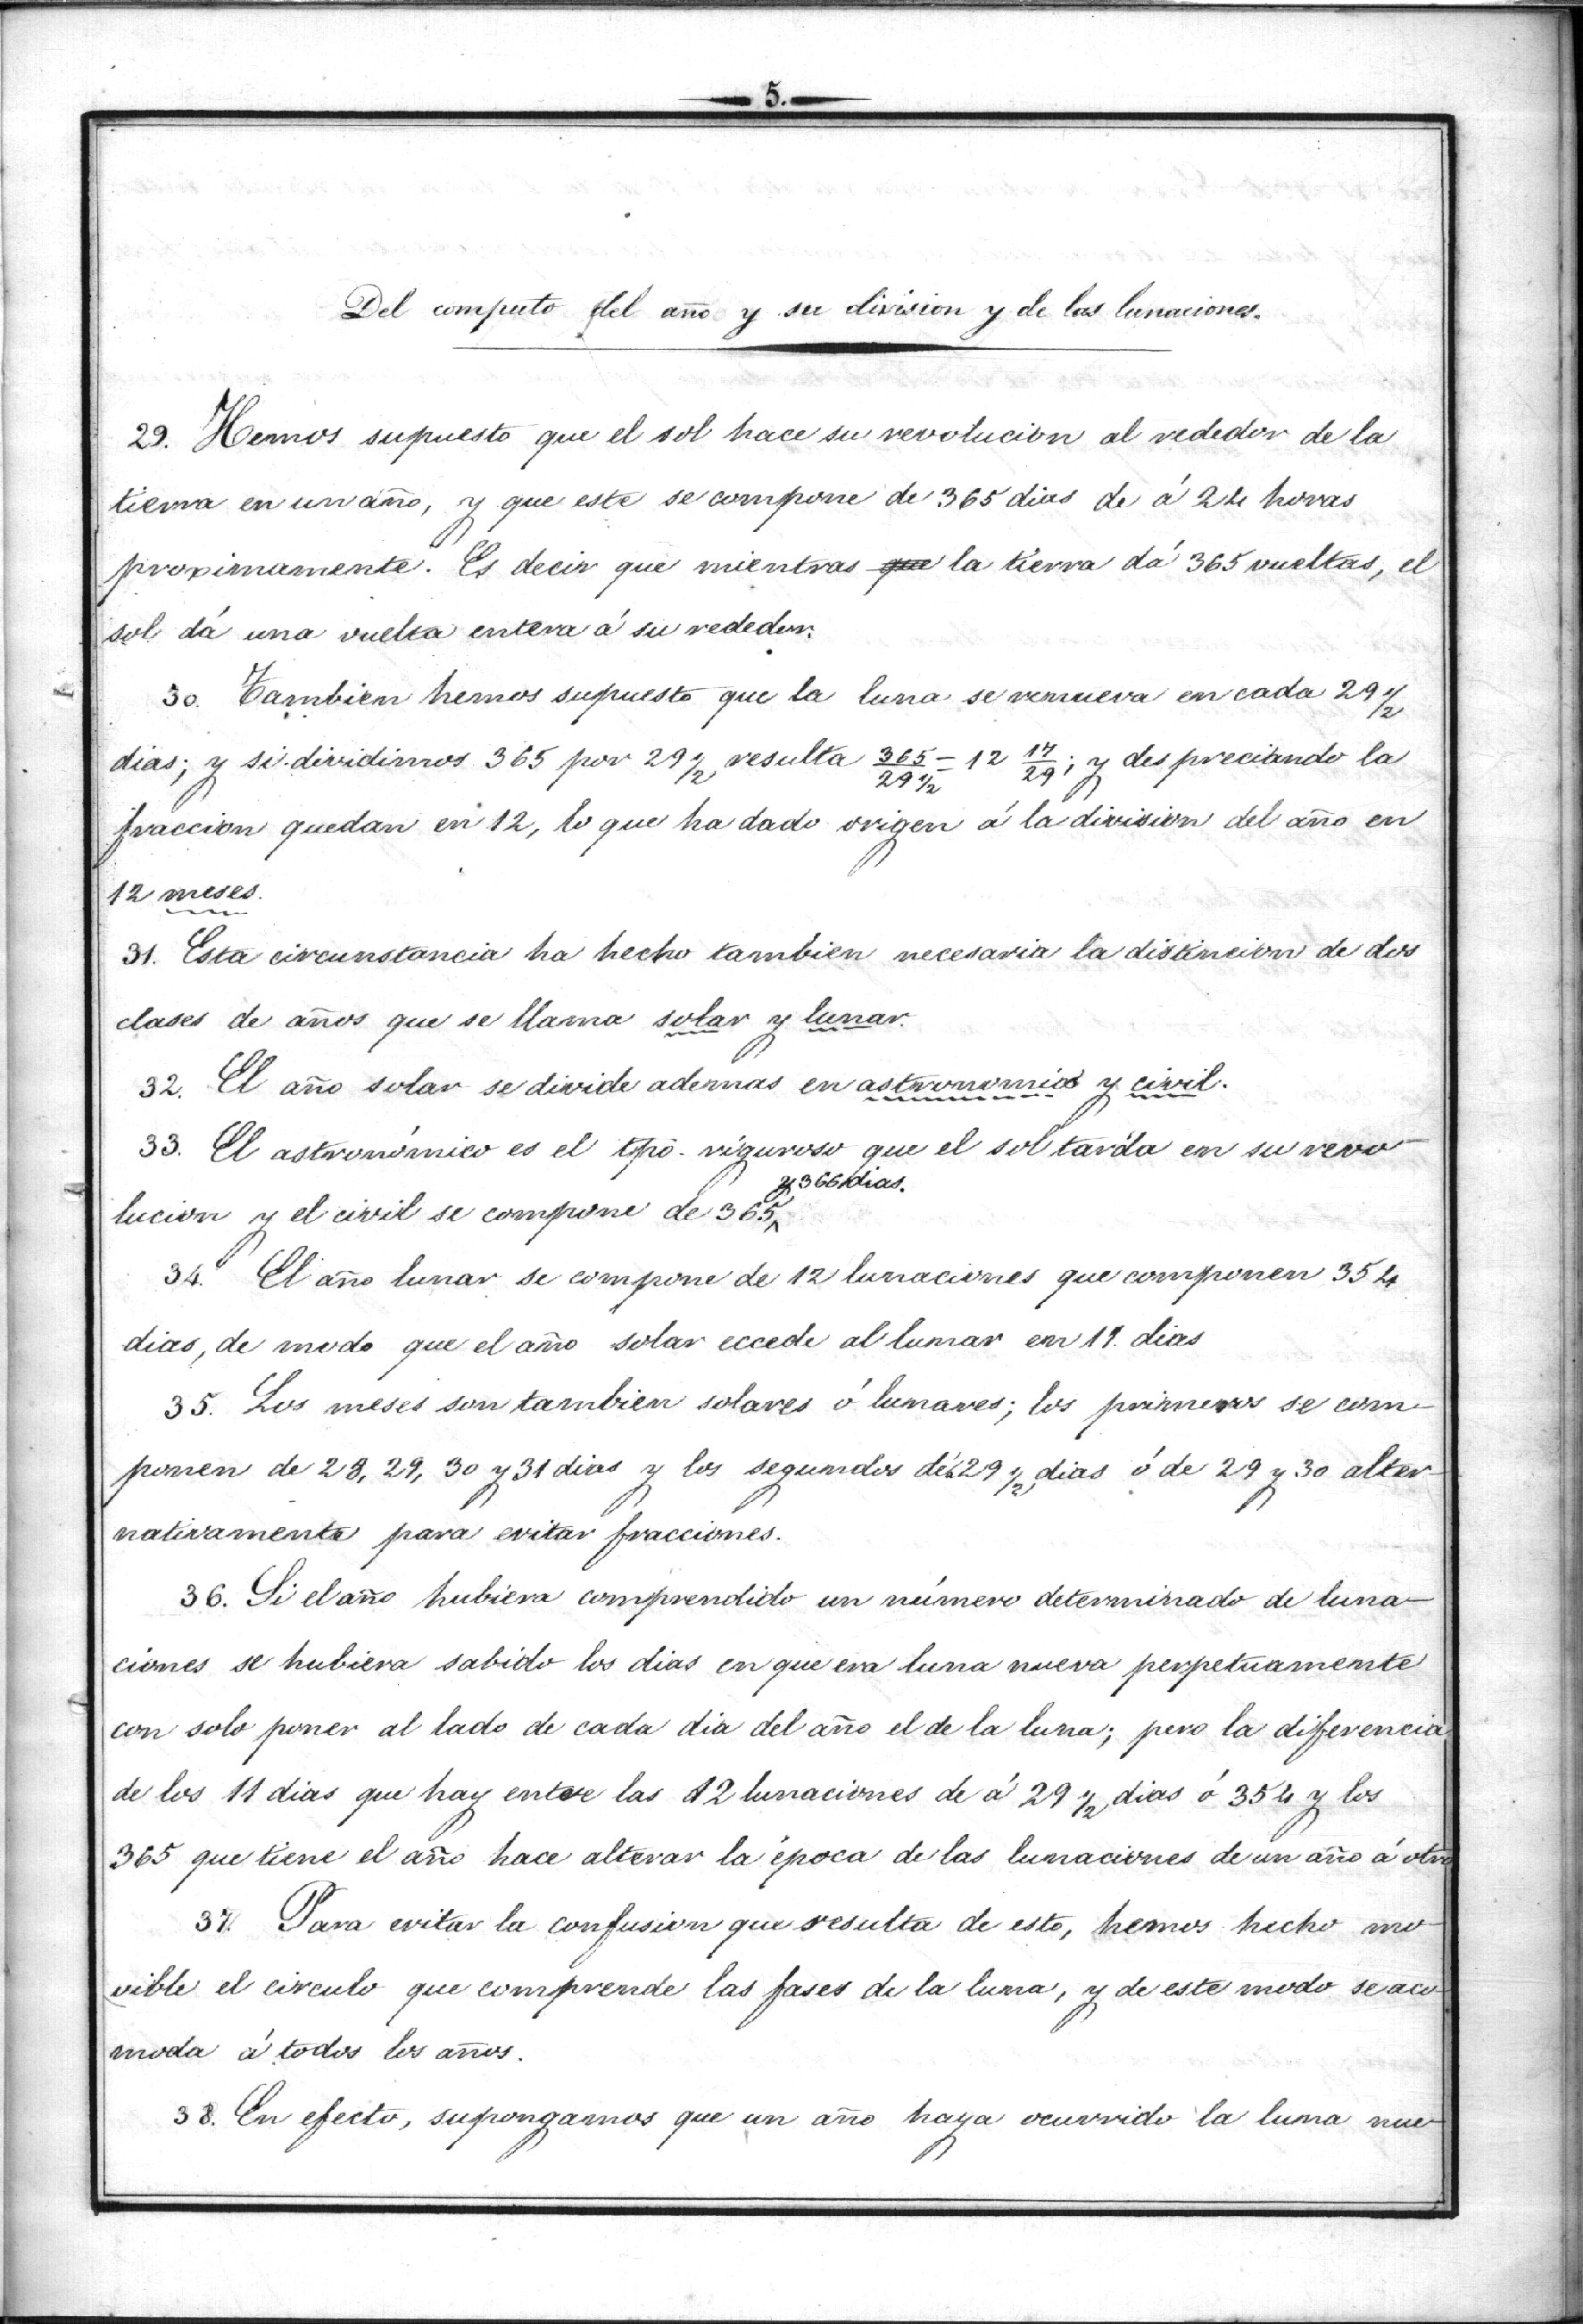 5.
Del computo del año y su division y de las lunaciones.
29. Hemos supuesto que el sol hace su revolucion al rededor de la
tierra en un año, y que este se compone de 365 dias de á 24 horas
proximamente. Es decir que mientras que la tierra dá 365 vueltas, el
sol dá una vuelta entera á su rededor.
30. Tambien hemos supuesto que la luna se renueva en cada 29 1/2
dias; y si dividimos 365 por 29 1/2 resulta 365/29 1/2 = 12 17/29; y despreciando la
fraccion quedan en 12, lo que ha dado origen á la division del año en
12 meses.
31. Esta circunstancia ha hecho tambien necesaria la distincion de dos
clases de años que se llama solar y lunar.
32. El año solar se divide ademas en astronomico y civil.
33. El astronómico es el tpō. riguroso que el sol tarda en su revo-
lucion y el civil se compone de 365 y 366 dias.
34. El año lunar se compone de 12 lunaciones que componen 354
dias, de modo que el año solar eccede al lunar en 11 dias
35. Los meses son tambien solares ó lunares; los primeros se com-
ponen de 28, 29, 30 y 31 dias y los segundos de 29 1/2 dias ó de 29 y 30 alter-
nativamente para evitar fracciones.
36. Si el año hubiera comprendido un número determinado de luna-
ciones se hubiera sabido los dias en que era luna nueva perpetuamente
con solo poner al lado de cada dia del año el de la luna; pero la diferencia
de los 11 dias que hay entre las 12 lunaciones de á 29 1/2 dias ó 354 y los
365 que tiene el año hace alterar la época de las lunaciones de un año á otro
37. Para evitar la confusion que resulta de esto, hemos hecho mo-
vible el circulo que comprende las fases de la luna, y de este modo se aco-
moda á todos los años.
38. En efecto, supongamos que un año haya ocurrido la luna nue-